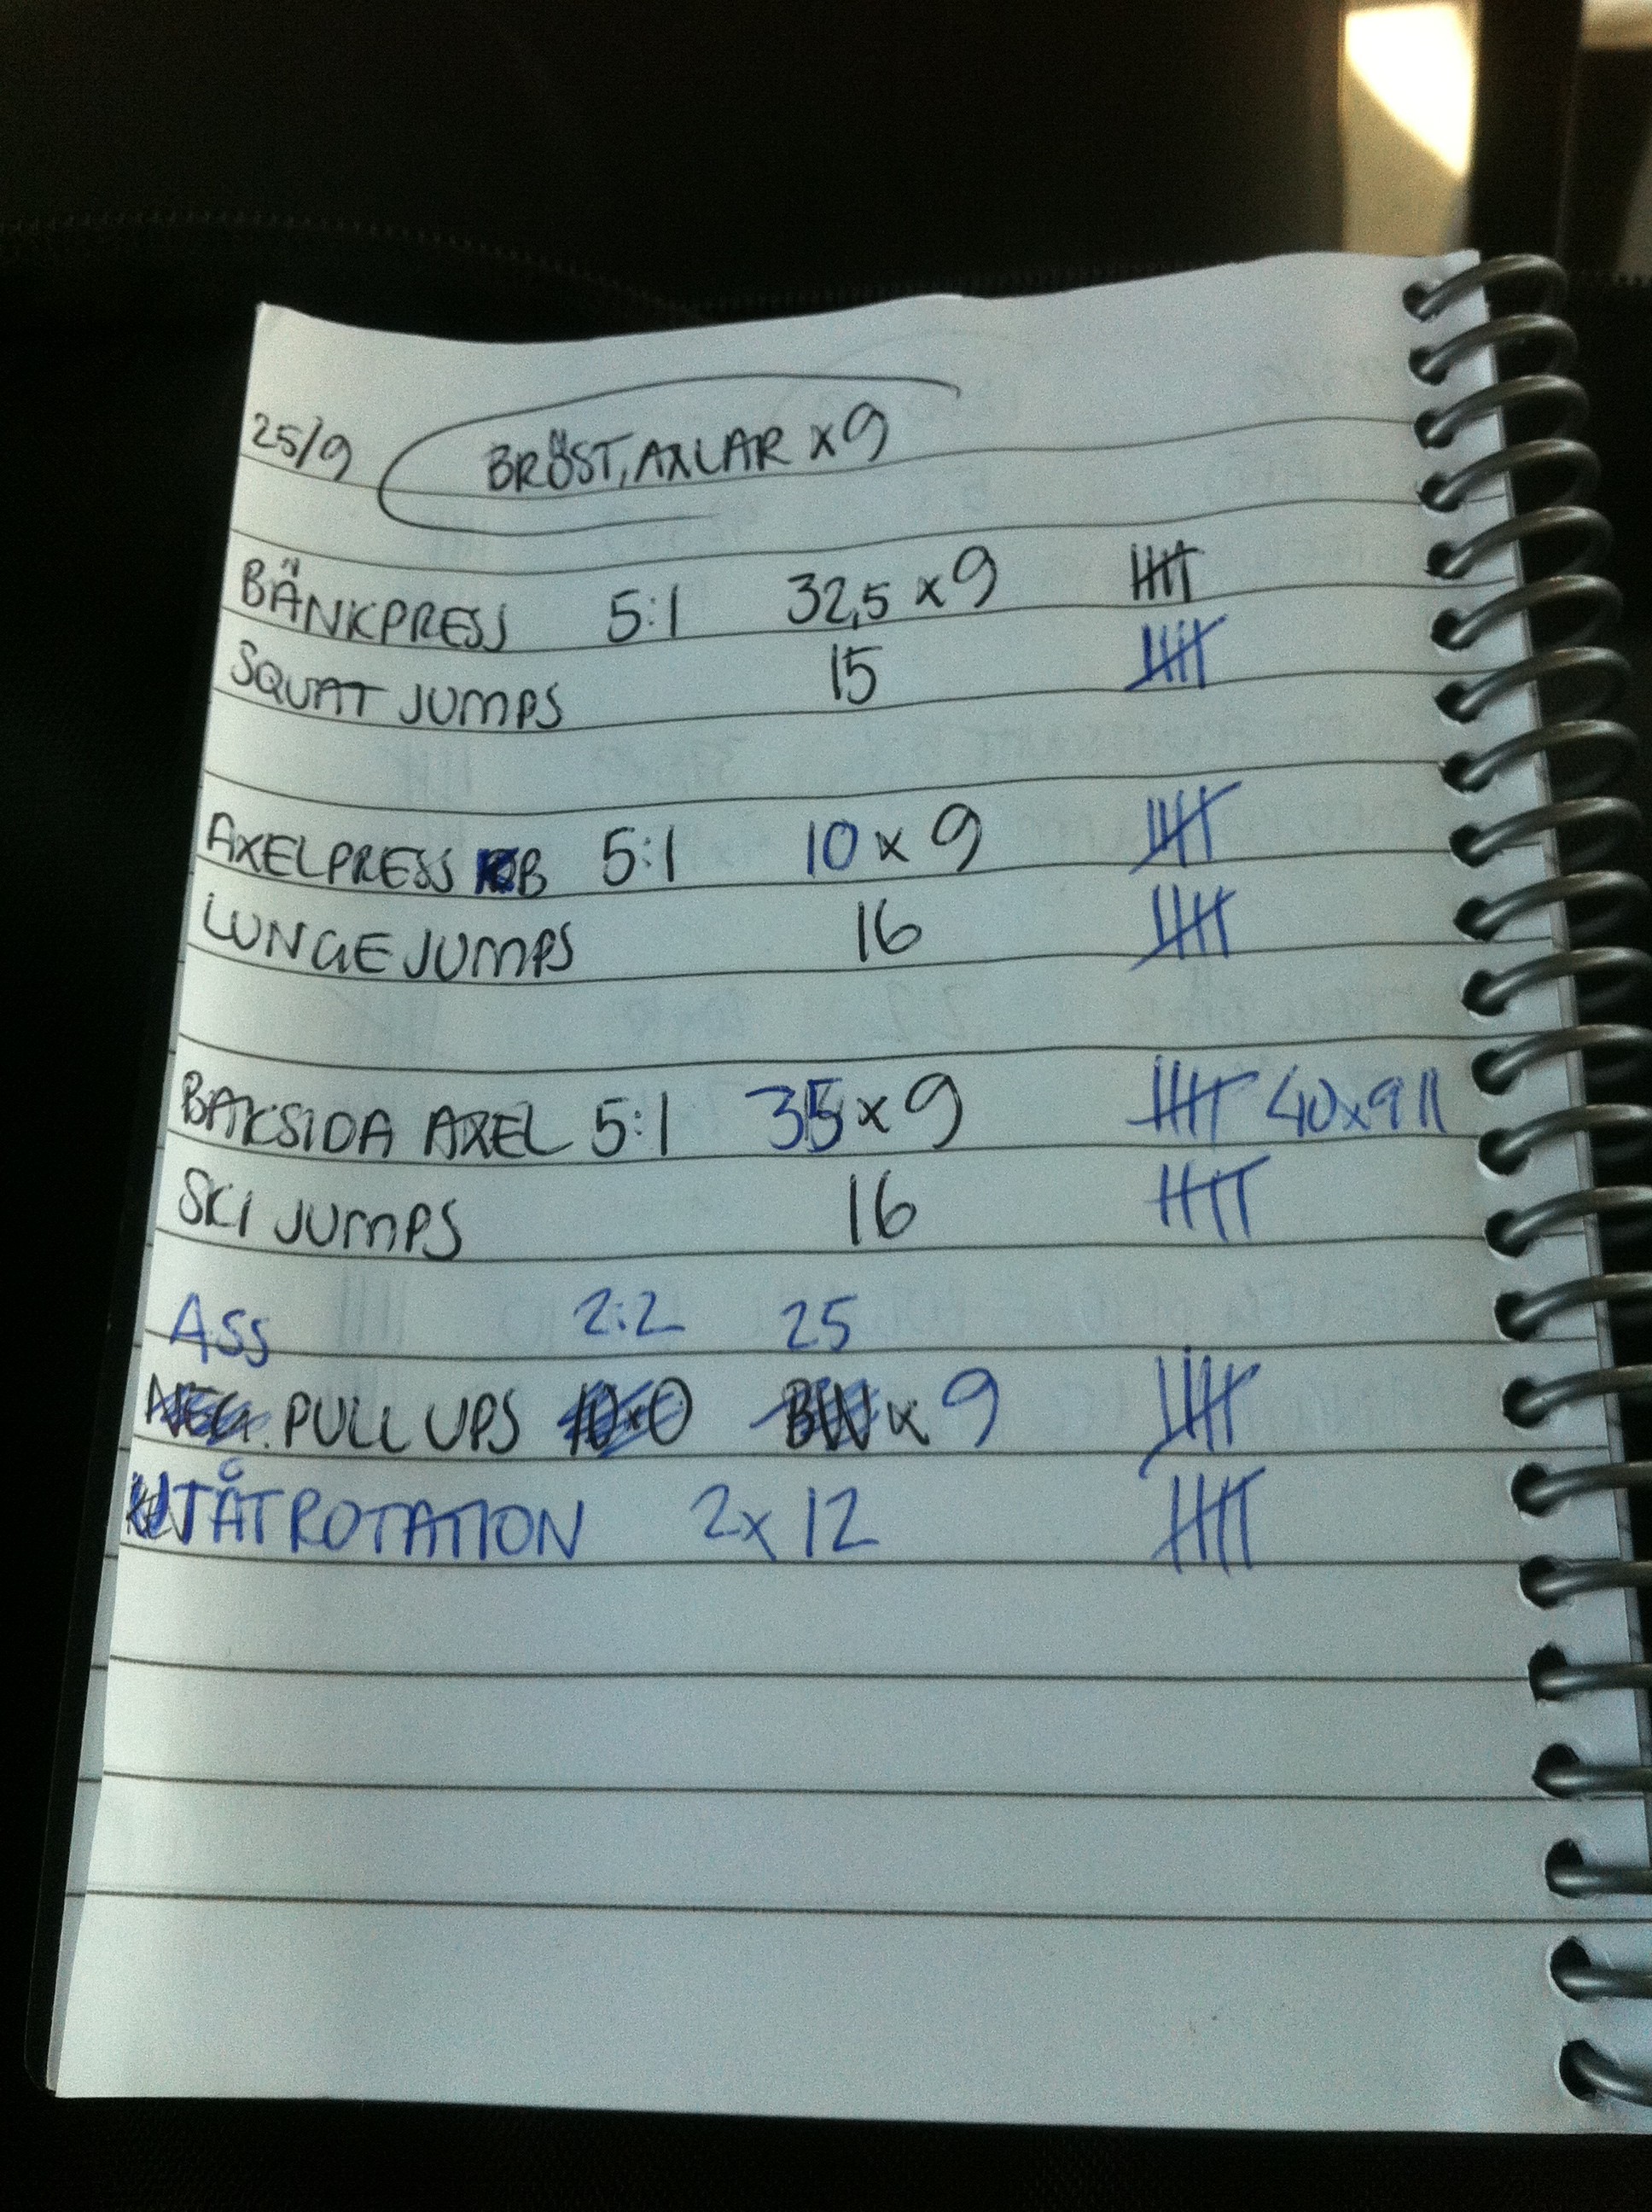 25/9 BRÖST, AXLAR x9
BÄNKPRESS 5:1 32,5 x 9
SQUAT JUMPS 15
AXELPRESS 5:1 10 x 9
LUNGE JUMPS 16
BAKSIDA AXEL 5:1 35 x 9 40x9 II
SKI JUMPS 16
ASS 2:2 25
PULL UPS x 9
UTÅTROTATION 2x12